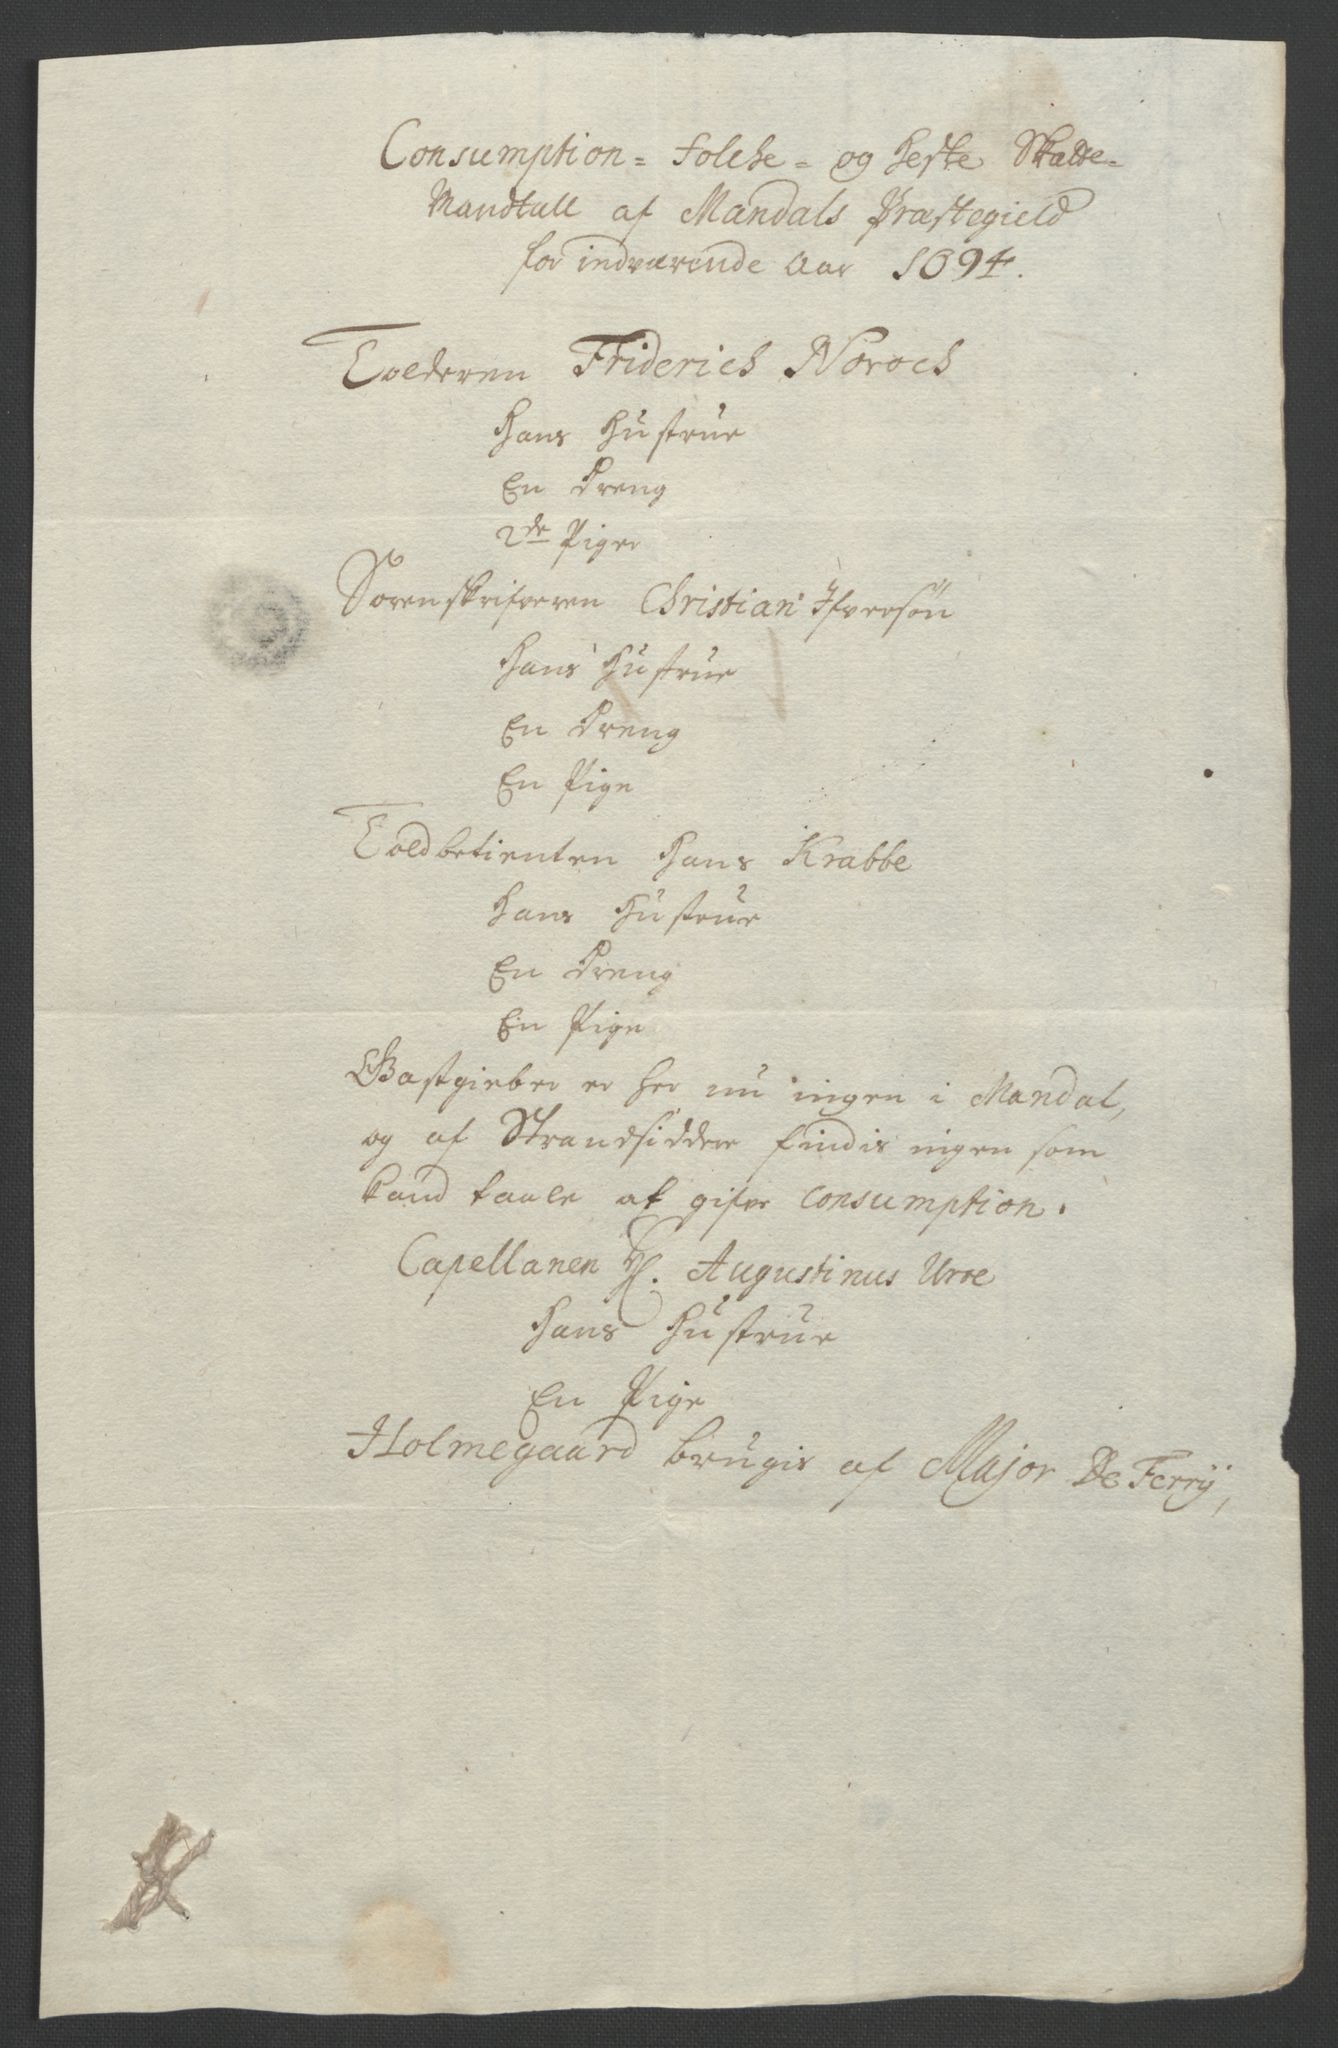 Consumption= Folche= og Heste Skatte=
Mandtall af Mandals Præstegield
for indværende Aar 1694.
Tolderen Friderich Noroch
Hans Hustrue
En Dreng
2de Piger
Sorenskrifveren Christian Ifversøn
Hans Hustrue
En Dreng
En Pige
Toldbetienten Hans Krabbe
Hans Hustrue
En Dreng
En Pige
Gastgieber er her nu ingen i Mandal,
og af Strandsiddere findis ingen som
kand taale at gifve Consumption.
Capellanen H. Augustinus Urve
Hans Hustrue
En Pige
Holmegaard brugis af Major De Ferrÿ,